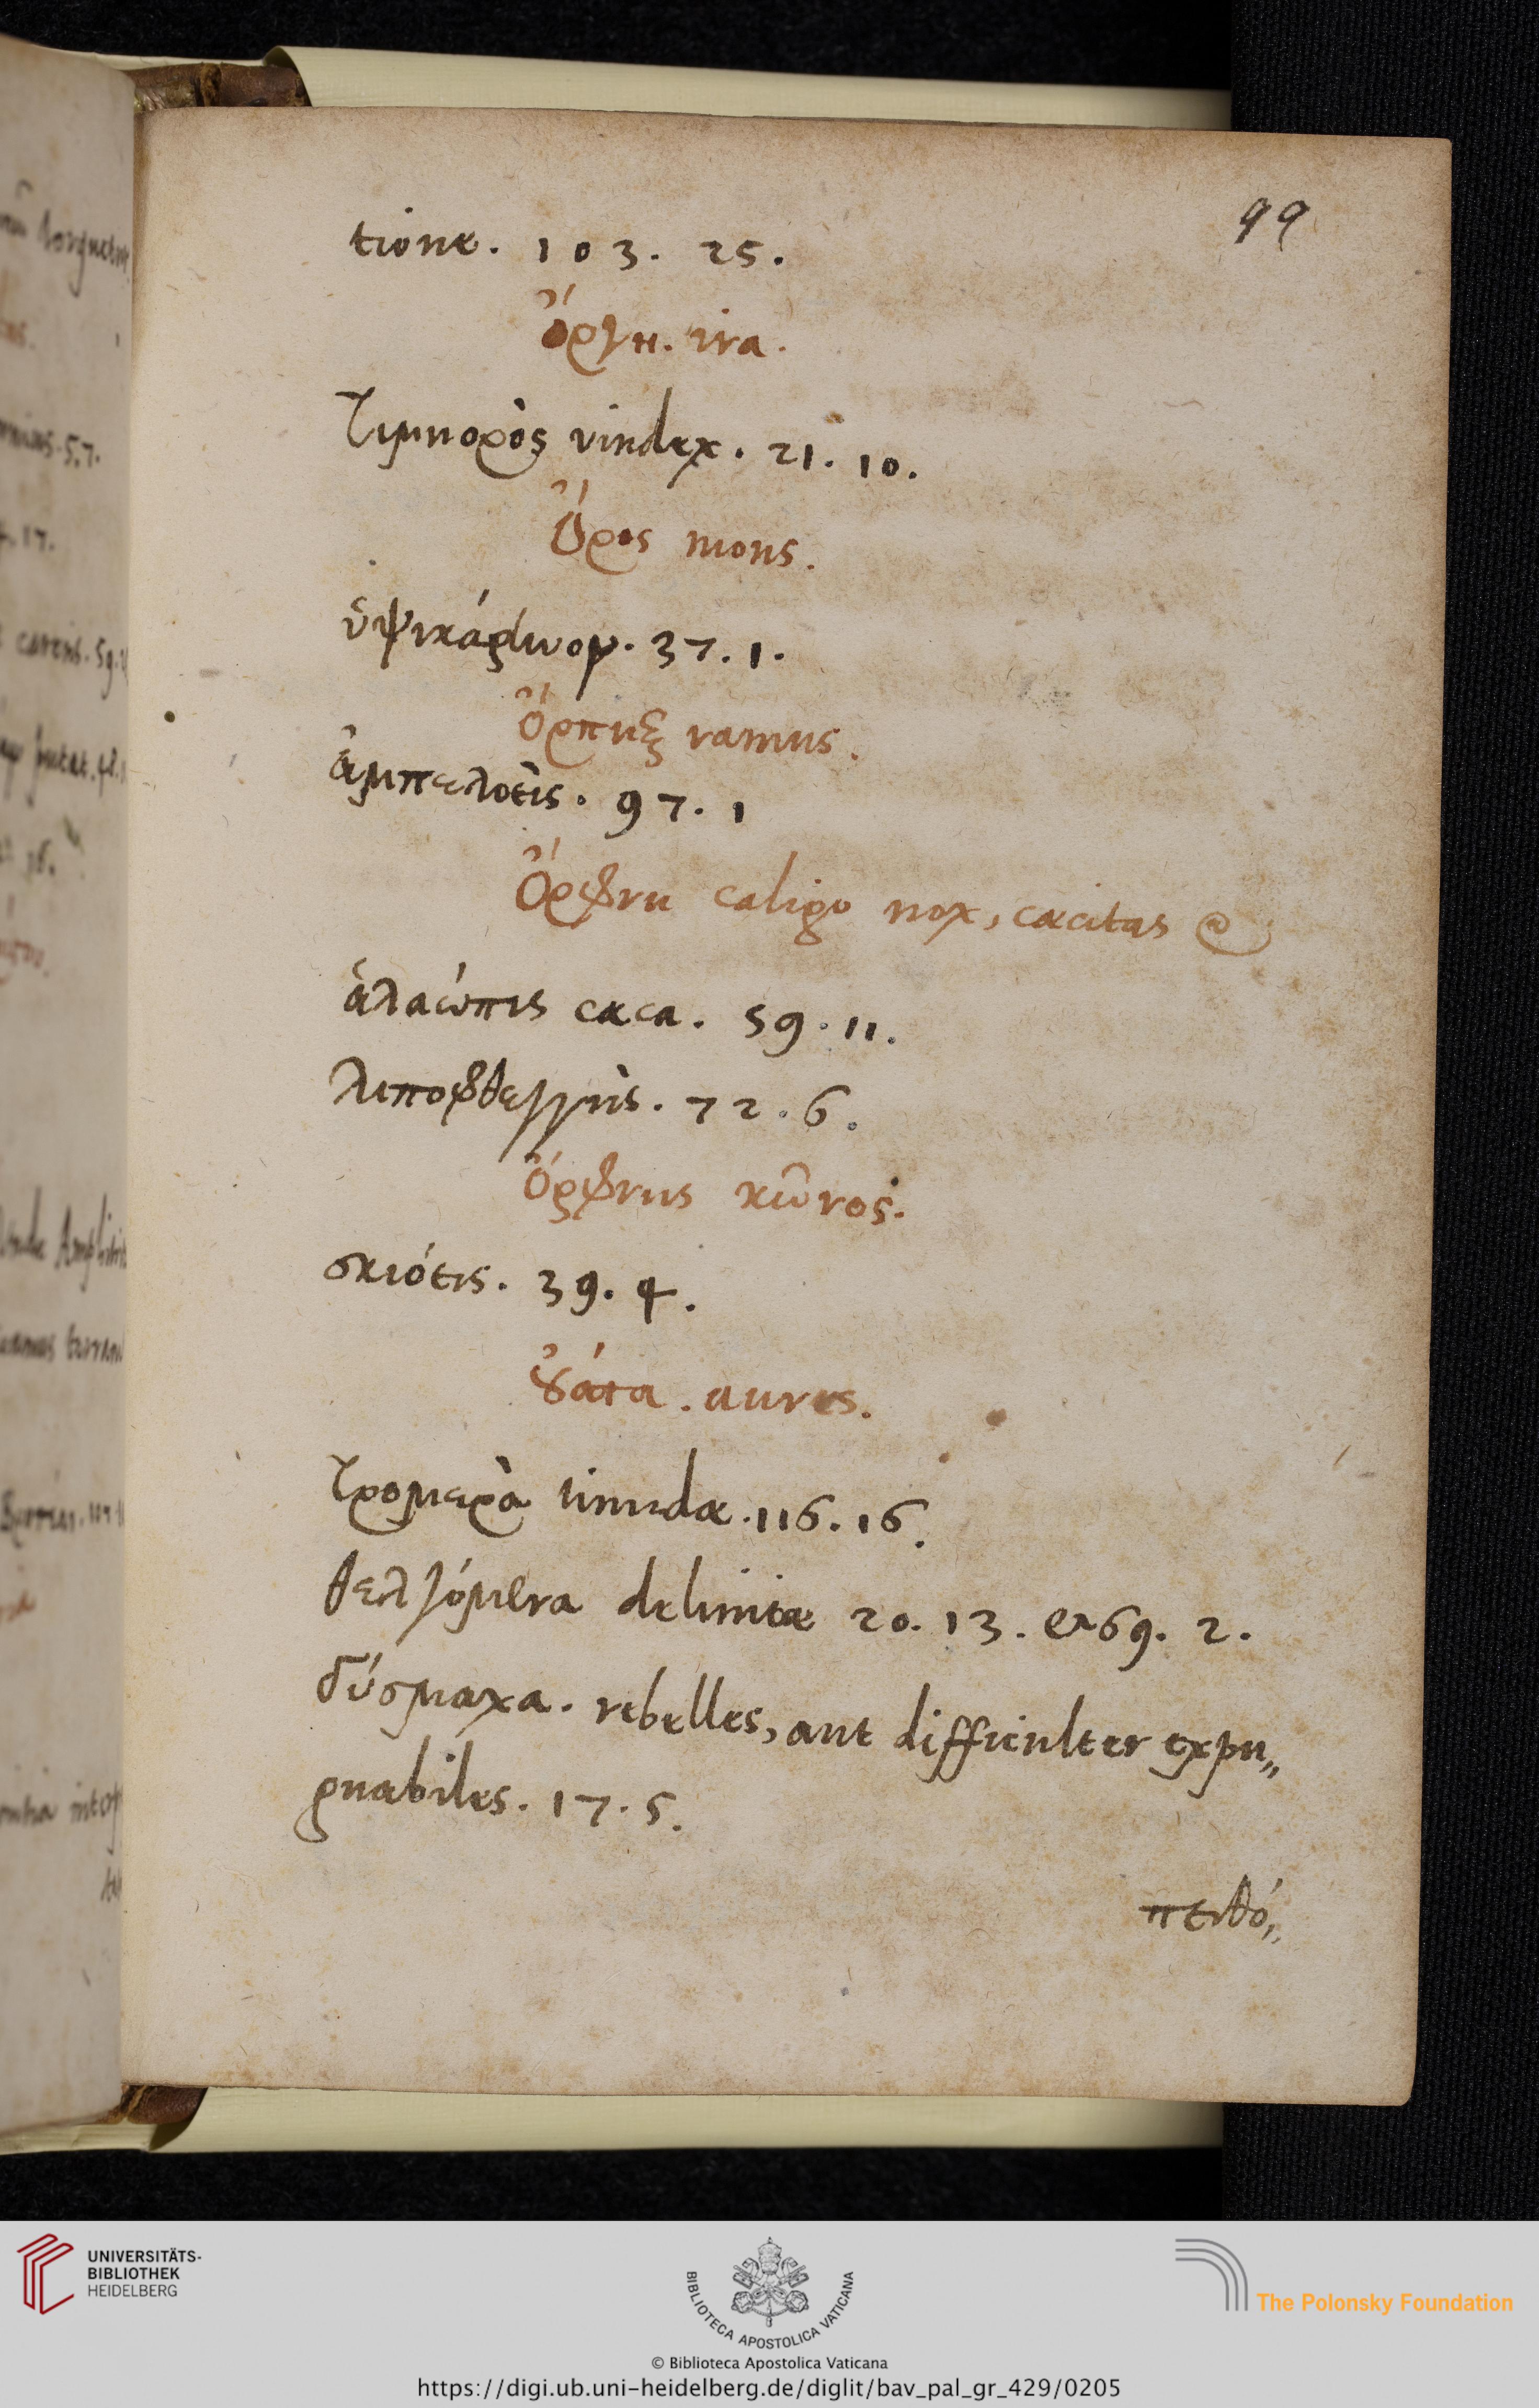 99
tione. 103. 25.
Ὄργη. ira.
Τιμηορὸς vindex. 21. 10.
Ὄρος mons.
ὑψικάρηνον. 37. 1.
Ὄρπηξ ramus.
ἀμπελόεις. 97. 1
Ὄρφνη caligo nox, cæcitas
ἀλαώπις cæca. 59. 11.
λιποφθεγγὴς. 72. 6.
Ὄρφνης κῶνος.
σκιόεις. 39. 4.
Ὄυατα. aures.
Τρομερὰ timidæ. 116. 16.
θελγόμενα delinitæ 20. 13. & 69. 2.
δύσμαχα. rebelles, aut difficulter expu„
gnabiles. 17. 5.
πειθό„
UNIVERSITÄTS-
BIBLIOTHEK
HEIDELBERG
BIBLIOTECA APOSTOLICA VATICANA
The Polonsky Foundation
© Biblioteca Apostolica Vaticana
https://digi.ub.uni-heidelberg.de/diglit/bav_pal_gr_429/0205